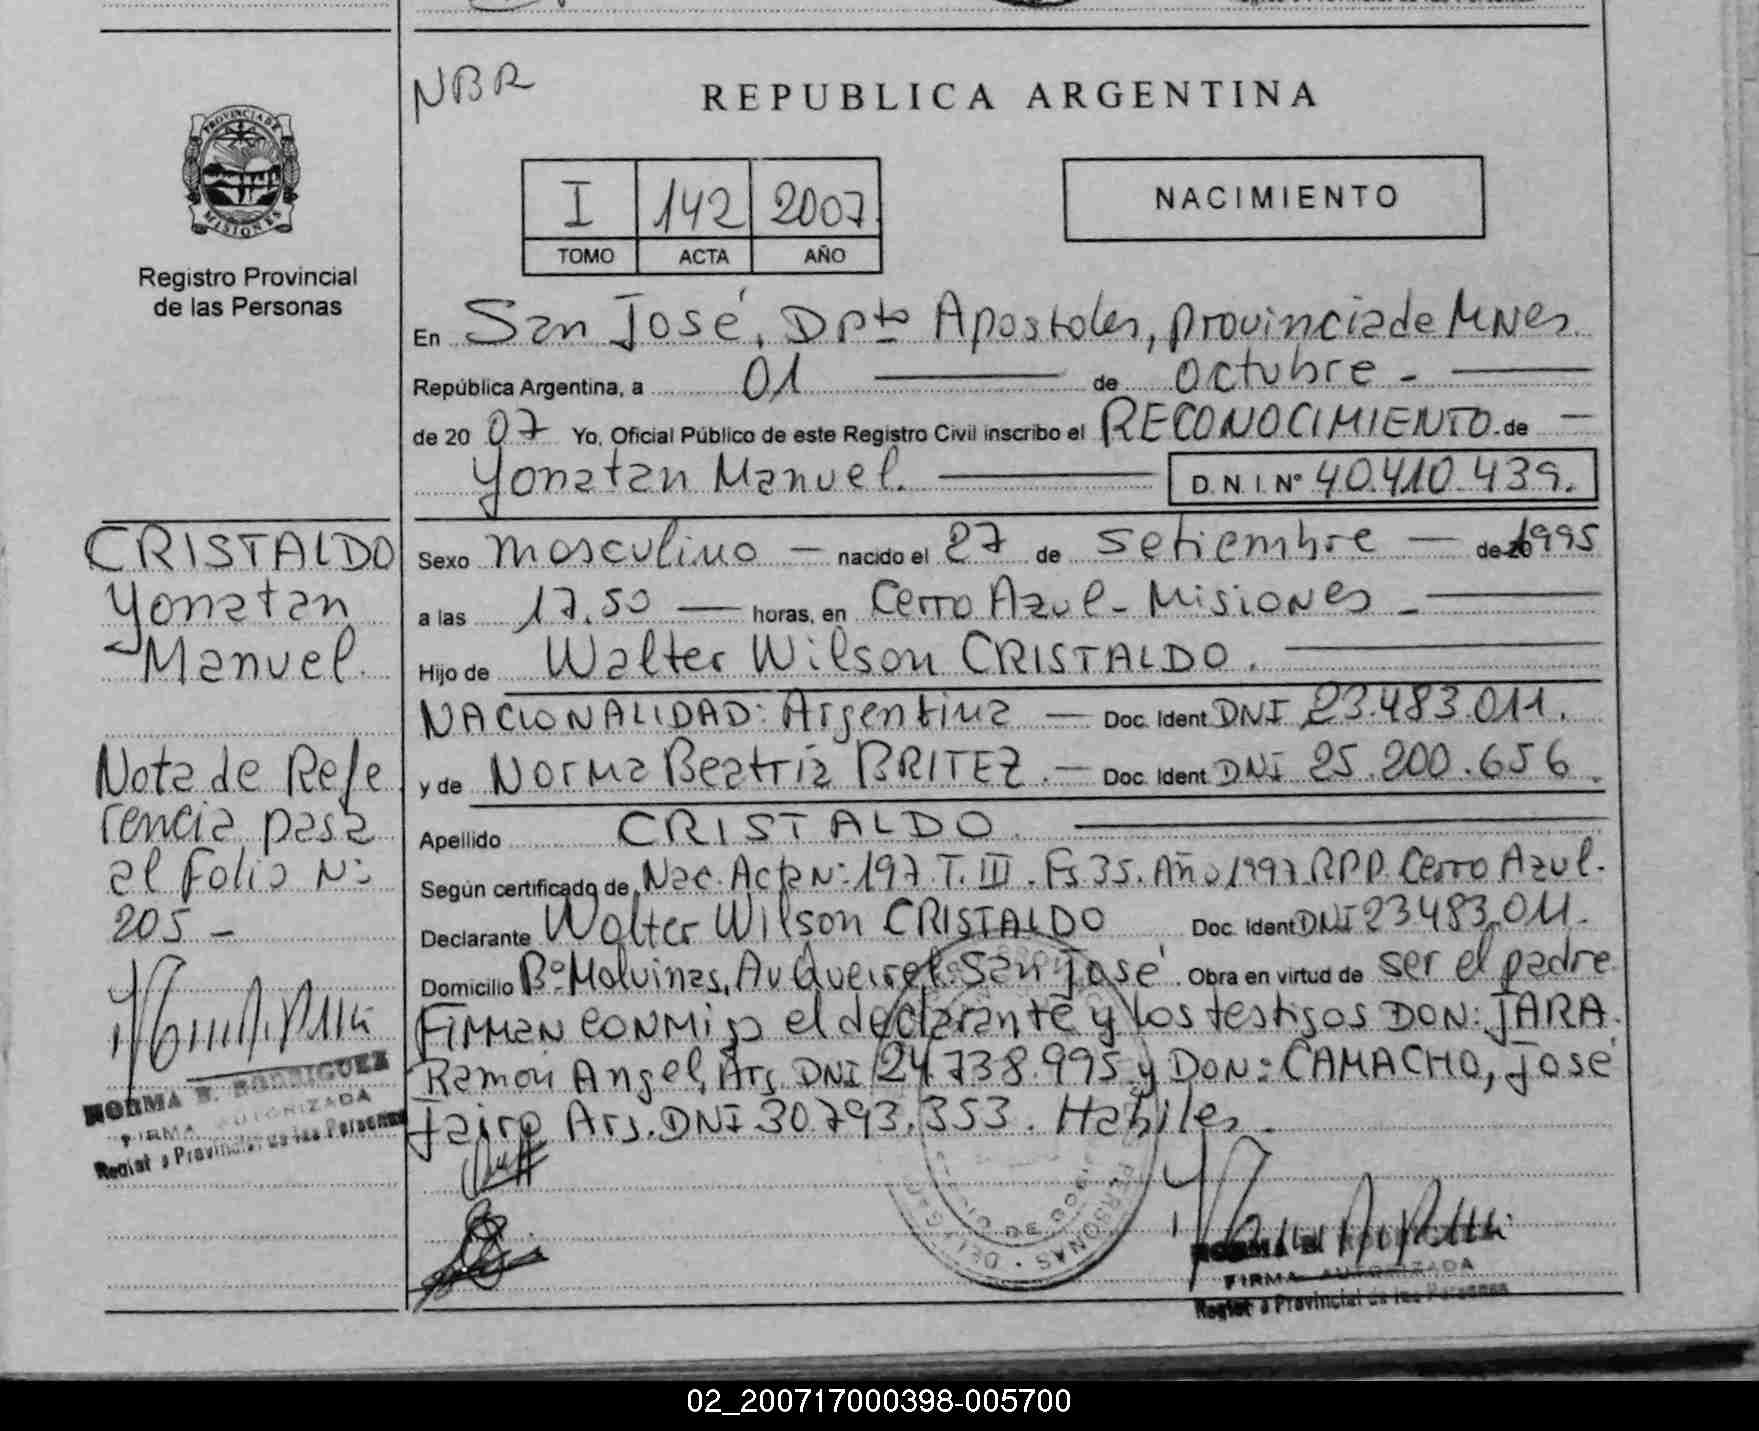 NBR
REPUBLICA ARGENTINA
PROVINCIA DE
MISIONES
Registro Provincial
de las Personas
I 142 2007
TOMO ACTA AÑO
NACIMIENTO
En San José, Dpto Apostoles, provincia de MNes
República Argentina, a 01 de octubre -
de 20 07 Yo, Oficial Público de este Registro Civil inscribo el RECONOCIMIENTO de
Yonatan Manuel. D. N. I. N° 40.410.439.
CRISTALDO
Yonatan
Manuel.
Sexo masculino nacido el 27 de setiembre de 1995
a las 17.50 horas, en Cerro Azul - Misiones -
Hijo de Walter Wilson CRISTALDO.
NACIONALIDAD: Argentina Doc. Ident DNI 23.483.011.
y de Norma Beatriz BRITEZ. Doc. Ident DNI 25.200.656.
Apellido CRISTALDO.
Nota de Refe
rencia pasa
al Folio N:
205 -
Según certificado de Nac. Acta N: 197 T. III. Fs 35. Año 1997 RPP. Cerro Azul.
Declarante Walter Wilson CRISTALDO Doc. Ident DNI 23483.011.
Domicilio B° Malvinas, Av San José. Obra en virtud de ser el padre
Firman conmigo el declarante y los testigos DON: JARA
Ramón Angel, Arg DNI 24.738.995 y DON: CAMACHO, José
Jairo Arg. DNI 30.793.353. Habiles.
NORMA B. RODRIGUEZ
FIRMA AUTORIZADA
Registro Provincial de las Personas
NORMA B.
FIRMA AUTORIZADA
Registro Provincial de las Personas
02_200717000398-005700